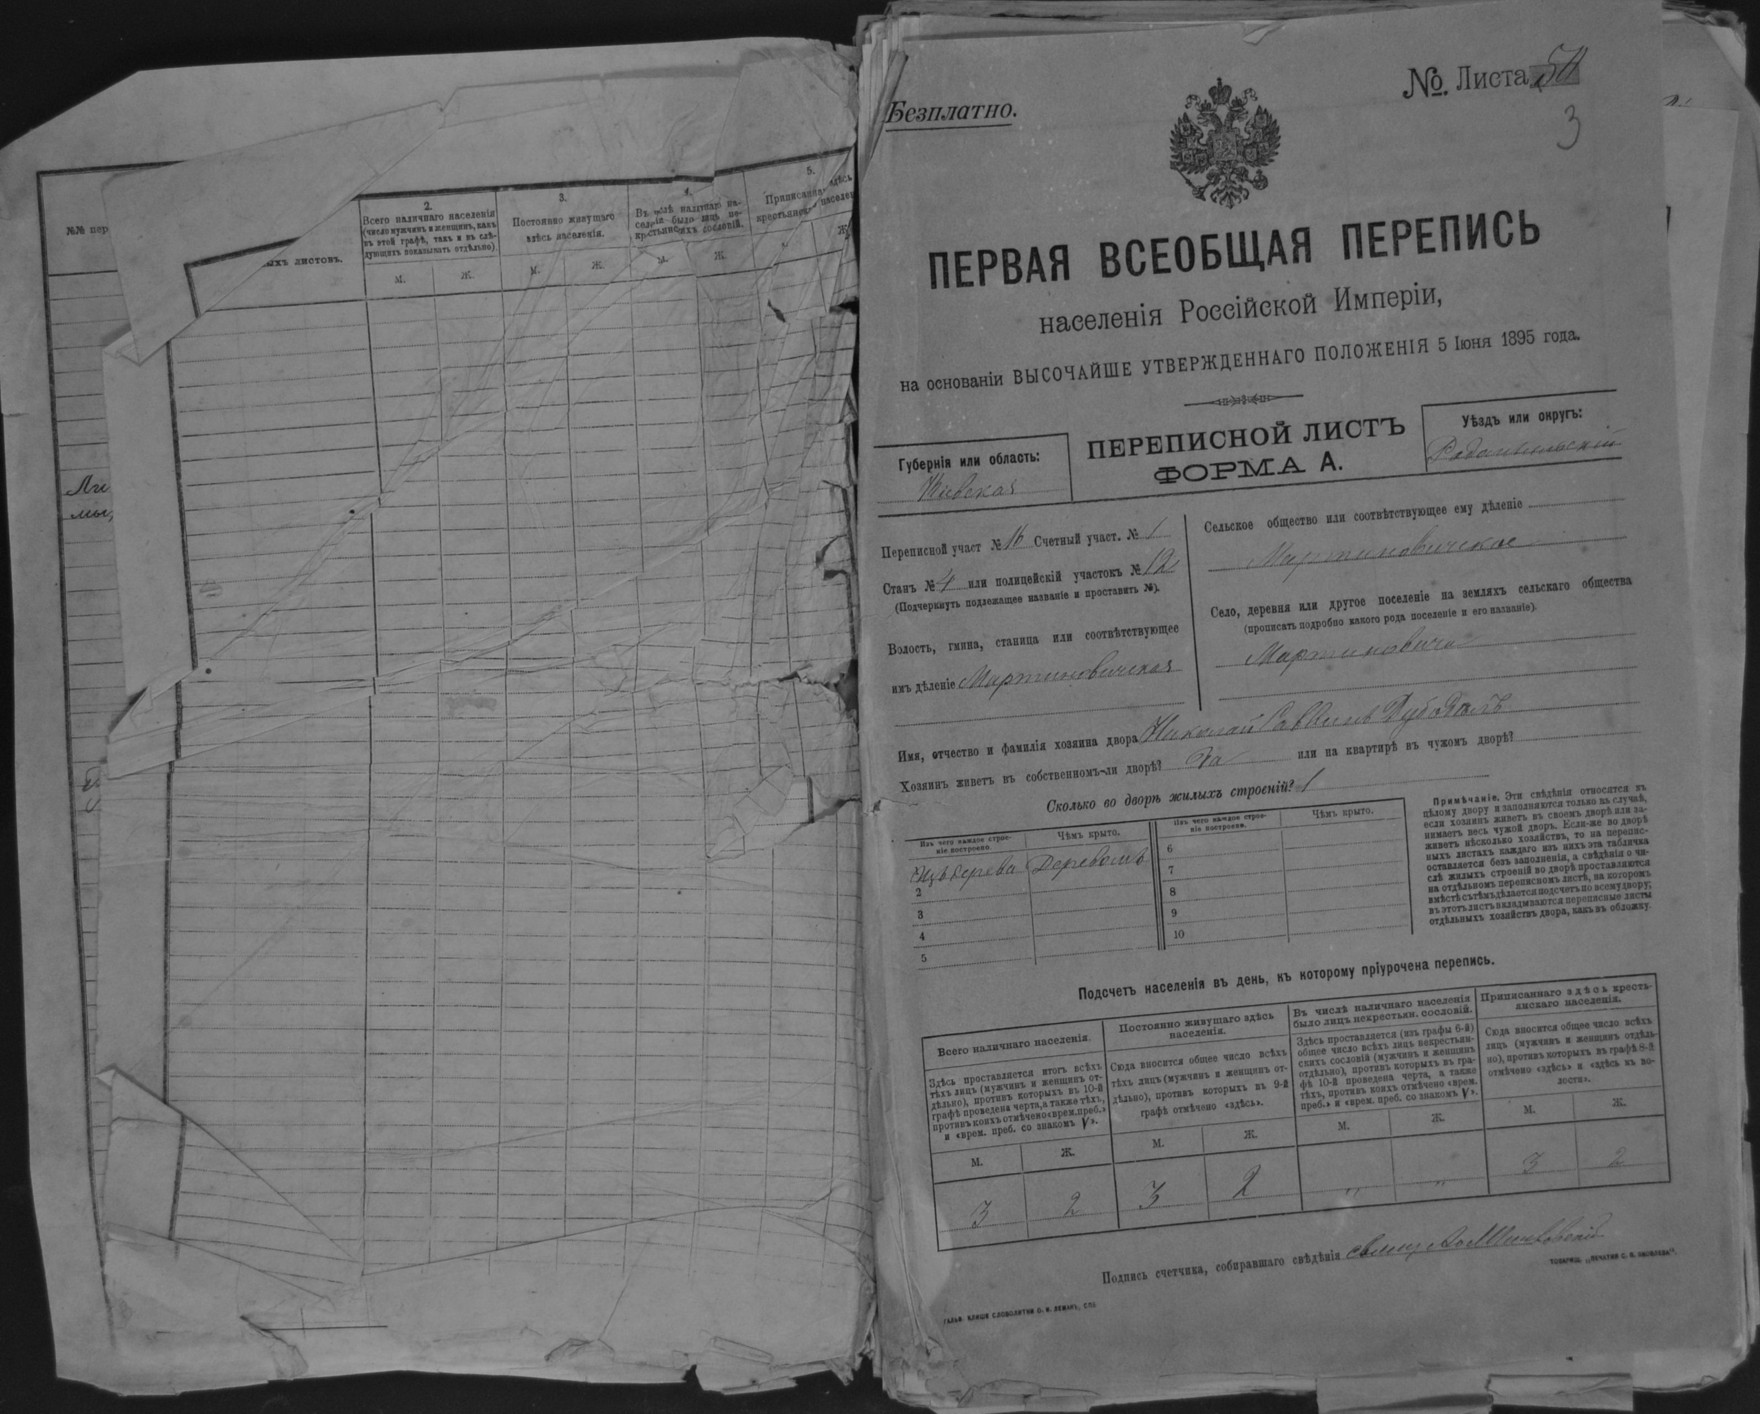 №№ пер
ыхъ листовъ.
2.
Всего наличнаго населенія
(число мужчинъ и женщинъ, какъ
въ этой графѣ, такъ и въ слѣ-
дующихъ показывать отдѣльно).
М. Ж.
3.
Постоянно живущаго
здѣсь населенія.
М. Ж.
4.
Въ числѣ наличнаго на-
селенія было лицъ не-
крестьянскихъ сословій.
М. Ж.
5.
Приписаннаго здѣсь
крестьянскаго населен
Ж.
Безплатно.
№ Листа
3
ПЕРВАЯ ВСЕОБЩАЯ ПЕРЕПИСЬ
населенія Россійской Имперіи,
на основаніи ВЫСОЧАЙШЕ УТВЕРЖДЕННАГО ПОЛОЖЕНІЯ 5 Іюня 1895 года.
Губернія или область:
Кіевская
ПЕРЕПИСНОЙ ЛИСТЪ
ФОРМА А.
Уѣздъ или округъ:
Радомысльскій
Переписной участ № 16 Счетный участ. № 1
Станъ № 4 или полицейскій участокъ № 12
(Подчеркнуть подлежащее названіе и проставить №).
Волость, гмина, станица или соотвѣтствующее
имъ дѣленіе Мартиновичская
Сельское общество или соотвѣтствующее ему дѣленіе
Мартиновичское
Село, деревня или другое поселеніе на земляхъ сельскаго общества
(прописать подробно какого рода поселеніе и его названіе).
Мартиновичи
Имя, отчество и фамилія хозяина двора Николай Саввинъ Дубодалъ
Хозяинъ живетъ въ собственномъ-ли дворѣ? Да или на квартирѣ въ чужомъ дворѣ?
Сколько во дворѣ жилыхъ строеній? 1
Изъ чего каждое строе-
ніе построено.
Чѣмъ крыто.
Изъ чего каждое строе-
ніе построено.
Чѣмъ крыто.
Изъ дерева Деревомъ
2
3
4
5
6
7
8
9
10
Примѣчаніе. Эти свѣдѣнія относятся къ
цѣлому двору и заполняются только въ случаѣ,
если хозяинъ живетъ въ своемъ дворѣ или за-
нимаетъ весь чужой дворъ. Если-же во дворѣ
живетъ нѣсколько хозяйствъ, то на перепис-
ныхъ листахъ каждаго изъ нихъ эта табличка
оставляется безъ заполненія, а свѣдѣнія о чи-
слѣ жилыхъ строеній во дворѣ проставляются
на отдѣльномъ переписномъ листѣ, на которомъ
вмѣстѣ съ тѣмъ дѣлается подсчетъ по всему двору;
въ этотъ листъ вкладываются переписные листы
отдѣльныхъ хозяйствъ двора, какъ въ обложку.
Подсчетъ населенія въ день, къ которому пріурочена перепись.
Всего наличнаго населенія.
Здѣсь проставляется итогъ всѣхъ
тѣхъ лицъ (мужчинъ и женщинъ от-
дѣльно), противъ которыхъ въ 10-й
графѣ проведена черта, а также тѣхъ,
противъ коихъ отмѣчено «врем. преб.»
и «врем. преб. со знакомъ V».
М. Ж.
3 2
Постоянно живущаго здѣсь
населенія.
Сюда вносится общее число всѣхъ
тѣхъ лицъ (мужчинъ и женщинъ от-
дѣльно), противъ которыхъ въ 9-й
графѣ отмѣчено «здѣсь».
М. Ж.
3 2
Въ числѣ наличнаго населенія
было лицъ некрестьян. сословій.
Здѣсь проставляется (изъ графы 6-й)
общее число всѣхъ лицъ некрестьян-
скихъ сословій (мужчинъ и женщинъ
отдѣльно), противъ которыхъ въ гра-
фѣ 10-й проведена черта, а также
тѣхъ, противъ коихъ отмѣчено «врем.
преб.» и «врем. преб. со знакомъ V».
М. Ж.
" "
Приписаннаго здѣсь кресть-
янскаго населенія.
Сюда вносится общее число всѣхъ
лицъ (мужчинъ и женщинъ отдѣль-
но), противъ которыхъ въ графѣ 8-й
отмѣчено «здѣсь» и «здѣсь въ во-
лости».
М. Ж.
3 2
Подпись счетчика, собиравшаго свѣдѣнія
ГАЛЬВ. КЛИШЕ СЛОВОЛИТНИ О. И. ЛЕМАНЪ, СПБ
ТОВАРИЩ. „ПЕЧАТНЯ С. П. ЯКОВЛЕВА".